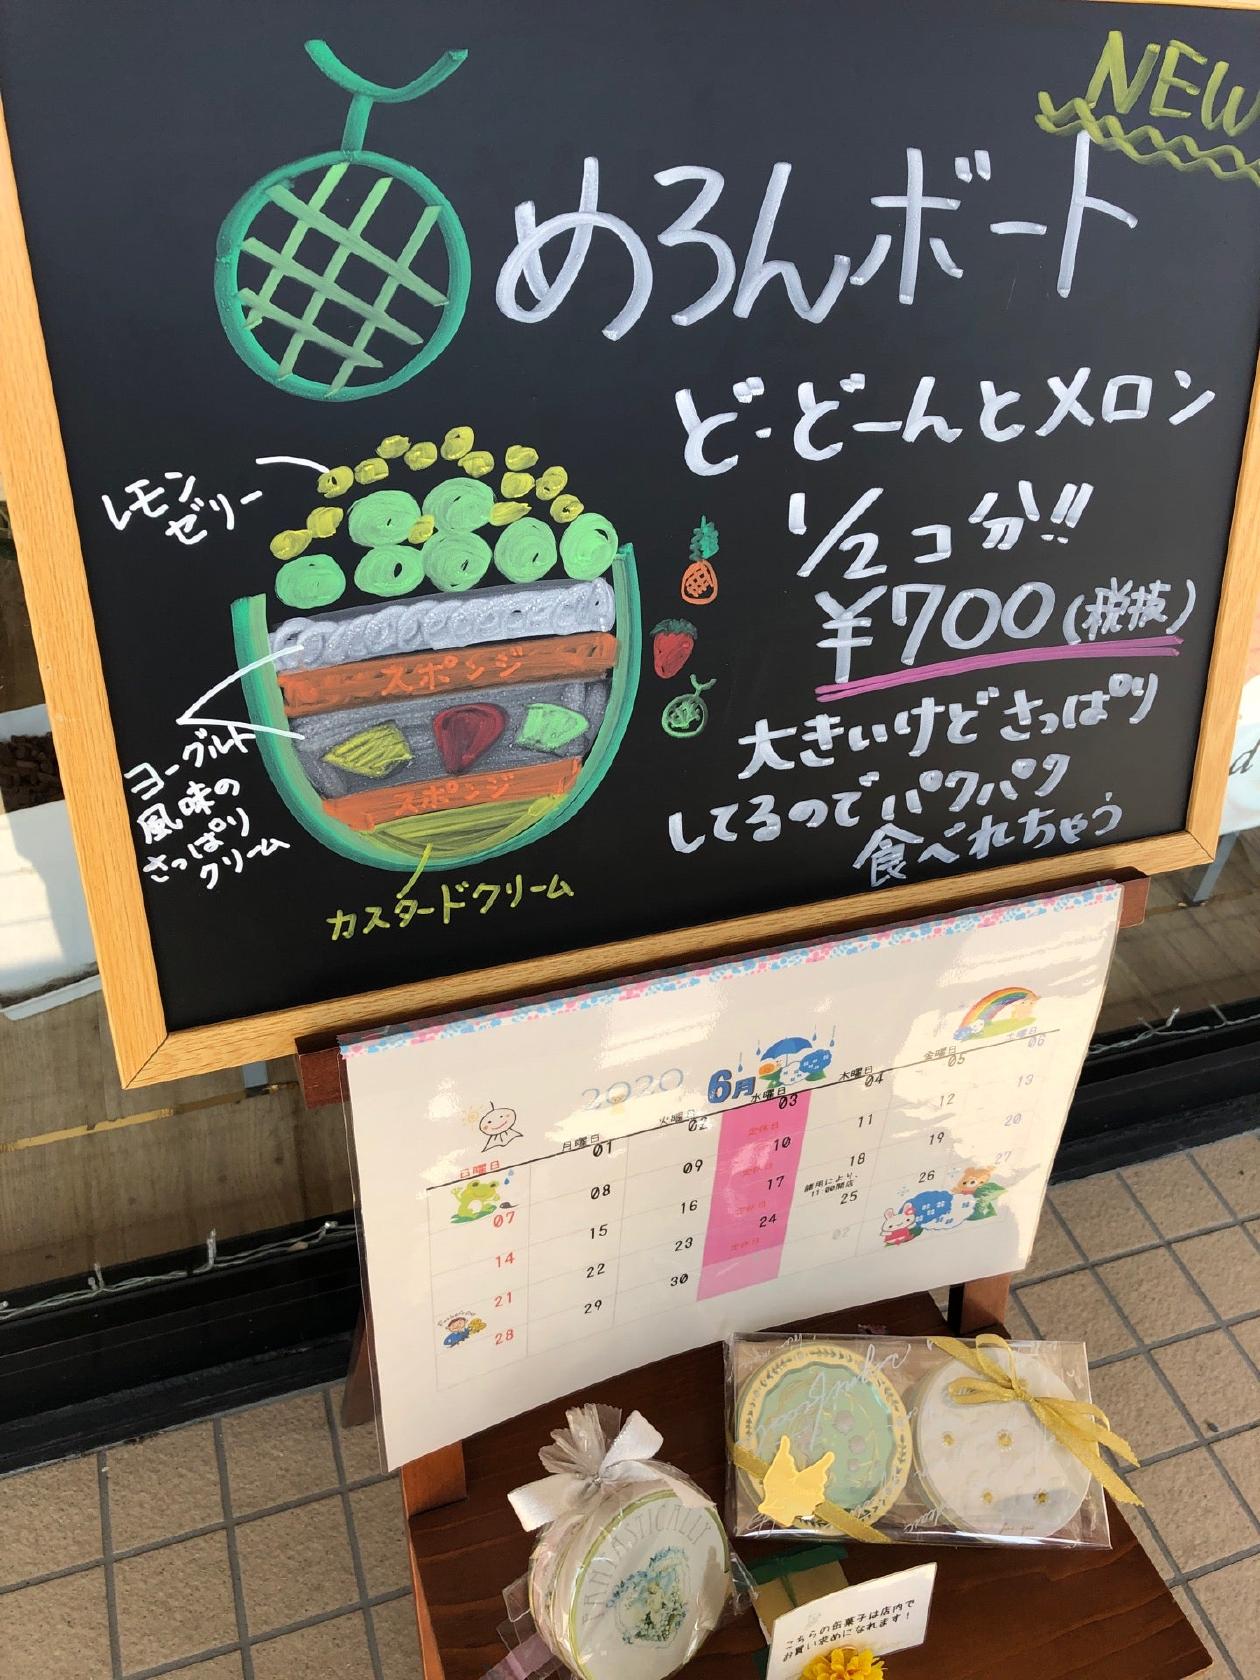 NEW
めろんボート
ど・どーんとメロン
1/2コ分!!
¥700(税抜)
大きいけどさっぱり
してるのでパクパク
食べれちゃう
レモン
ゼリー
スポンジ
スポンジ
ヨーグルト
風味の
さっぱり
クリーム
カスタードクリーム
2020 6月
日曜日 月曜日 火曜日 水曜日 木曜日 金曜日 土曜日
01 02 03 04 05 06
定休日
07 08 09 10 11 12 13
定休日
14 15 16 17 18 19 20
定休日
諸用により、
11:00開店
21 22 23 24 25 26 27
定休日
28 29 30 02
FANTASTICALLY
こちらの缶菓子は店内で
お買い求めになれます!